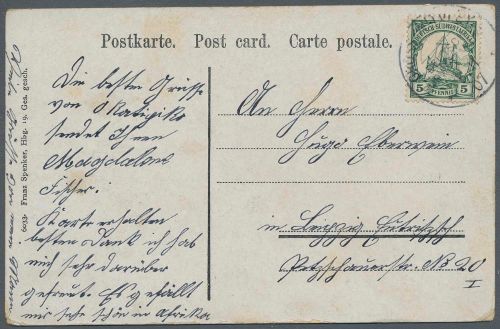 Postkarte. Post card. Carte postale.
DEUTSCH-SÜDWESTAFRIKA
5 PFENNIG 5
07
Die besten Grüsse
von Okanjika
sendet Ihnen
Magdalene
Fischer.
Karte erhalten
besten Dank ich hab
mich sehr darüber
gefreut. Es gefällt
mir sehr schön in Afrika
An Herrn
Hugo Eberwein
in Leipzig Eutritzsch
Petzschauerstr. No 20
I
6033 Franz Spenker, Hbg. 19. Ges. gesch.